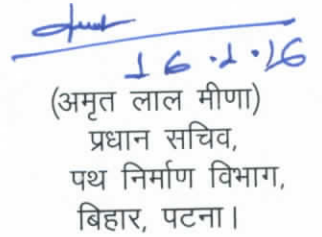 16.1.16
(अमृत लाल मीणा)
प्रधान सचिव,
पथ निर्माण विभाग,
बिहार, पटना।